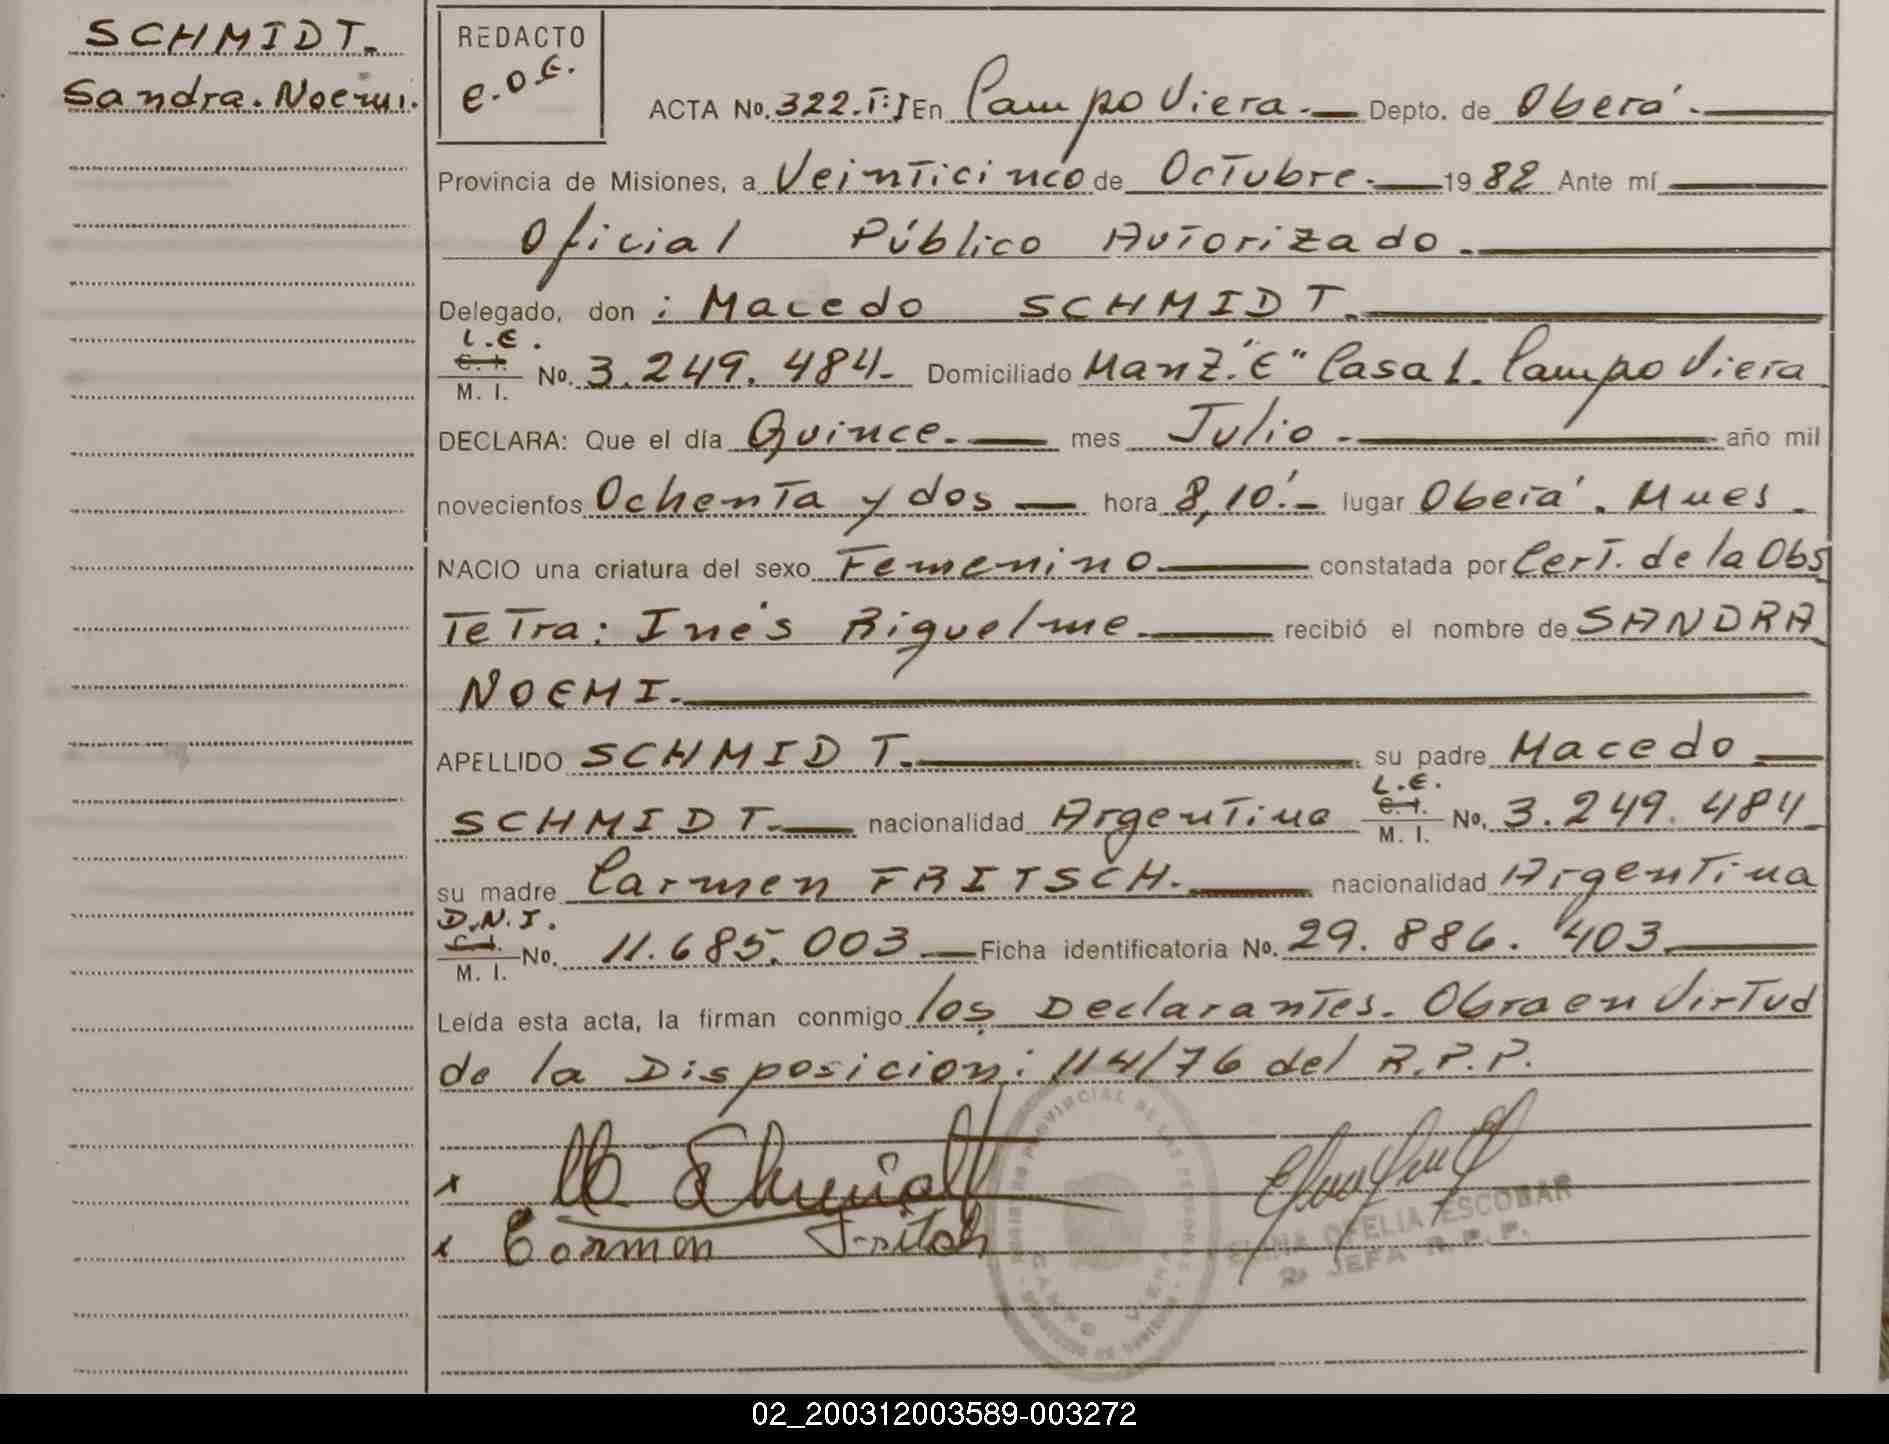 SCHMIDT.
Sandra. Noemi.
REDACTO
E.O.E.
ACTA No. 322. T:I En Campo Viera. Depto. de Oberá.
Provincia de Misiones, a Veinticinco de Octubre. 19 82 Ante mí
Oficial Público Autorizado.
Delegado, don : Macedo SCHMIDT.
L.E.
C. I.
M. I.
No. 3.249.484. Domiciliado Manz. "E" Casa 1. Campo Viera
DECLARA: Que el día Quince. mes Julio. año mil
novecientos Ochenta y dos hora 8,10'. lugar Oberá. Mnes.
NACIO una criatura del sexo Femenino constatada por Cert. de la Obs
Tetra: Inés Riquelme. recibió el nombre de SANDRA
NOEMI.
APELLIDO SCHMIDT. su padre Macedo
L.E.
SCHMIDT. nacionalidad Argentina C. I. M. I. No. 3.249.484
su madre Carmen FRITSCH. nacionalidad Argentina
D.N.I.
C. I.
M. I.
No. 11.685.003 Ficha identificatoria No. 29.886.403
Leída esta acta, la firman conmigo los Declarantes. Obra en Virtud
de la Disposicion: 114/76 del R.P.P.
x M Schmidt
x Carmen Fritch
PROVINCIAL DE LAS PERSONAS
CAMPO VIERA
OFELIA ESCOBAR
JEFA R.P.P.
02_200312003589-003272